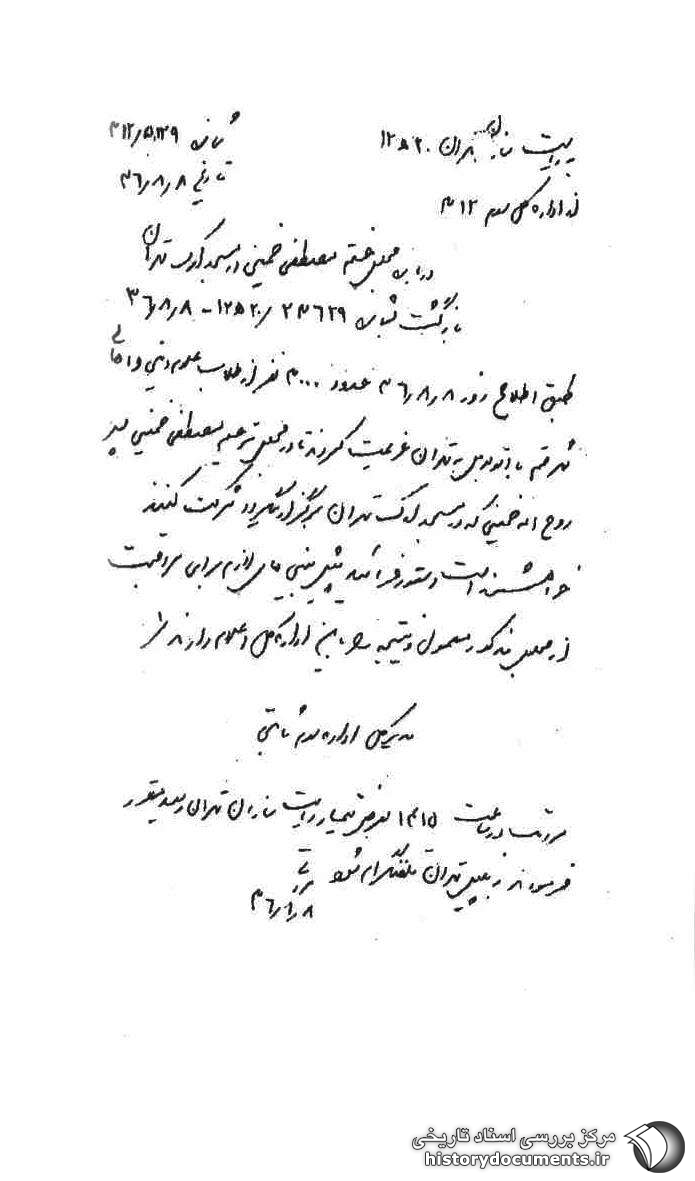 به ریاست سازمان تهران ۱۲ﻫ۲۰
شماره ۳۱۲/۵۱۳۹
از اداره کل سوم ۳۱۲
تاریخ ۳۶/۸/۸
درباره مجلس ختم مصطفی خمینی در مسجد ارک تهران
بازگشت به شماره ۲۳۶۲۹/۲۰ﻫ۱۲ - ۳۶/۸/۸
طبق اطلاع روز ۳۶/۸/۸ حدود ۳۰۰۰ نفر از طلاب علوم دینی و اهالی
شهر قم با اتومبیل به تهران عزیمت کردند تا در مجلس ترحیم مصطفی خمینی پسر
روح اله خمینی که در مسجد ارک تهران برگزار میگردد شرکت کنند
خواهشمند است دستور فرمائید پیش بینی های لازم برای مراقبت
از مجلس مذکور معمول و نتیجه را به این اداره کل اعلام دارند
مدیرکل اداره سوم ثابتی
مراتب در ساعت ۱۴۱۵ بعرض تیمسار ریاست سازمان تهران رسید دستور
فرمودند به پلیس تهران تلفنگرام شود
۳۶/۸/۸
مرکز بررسی اسناد تاریخی
historydocuments.ir